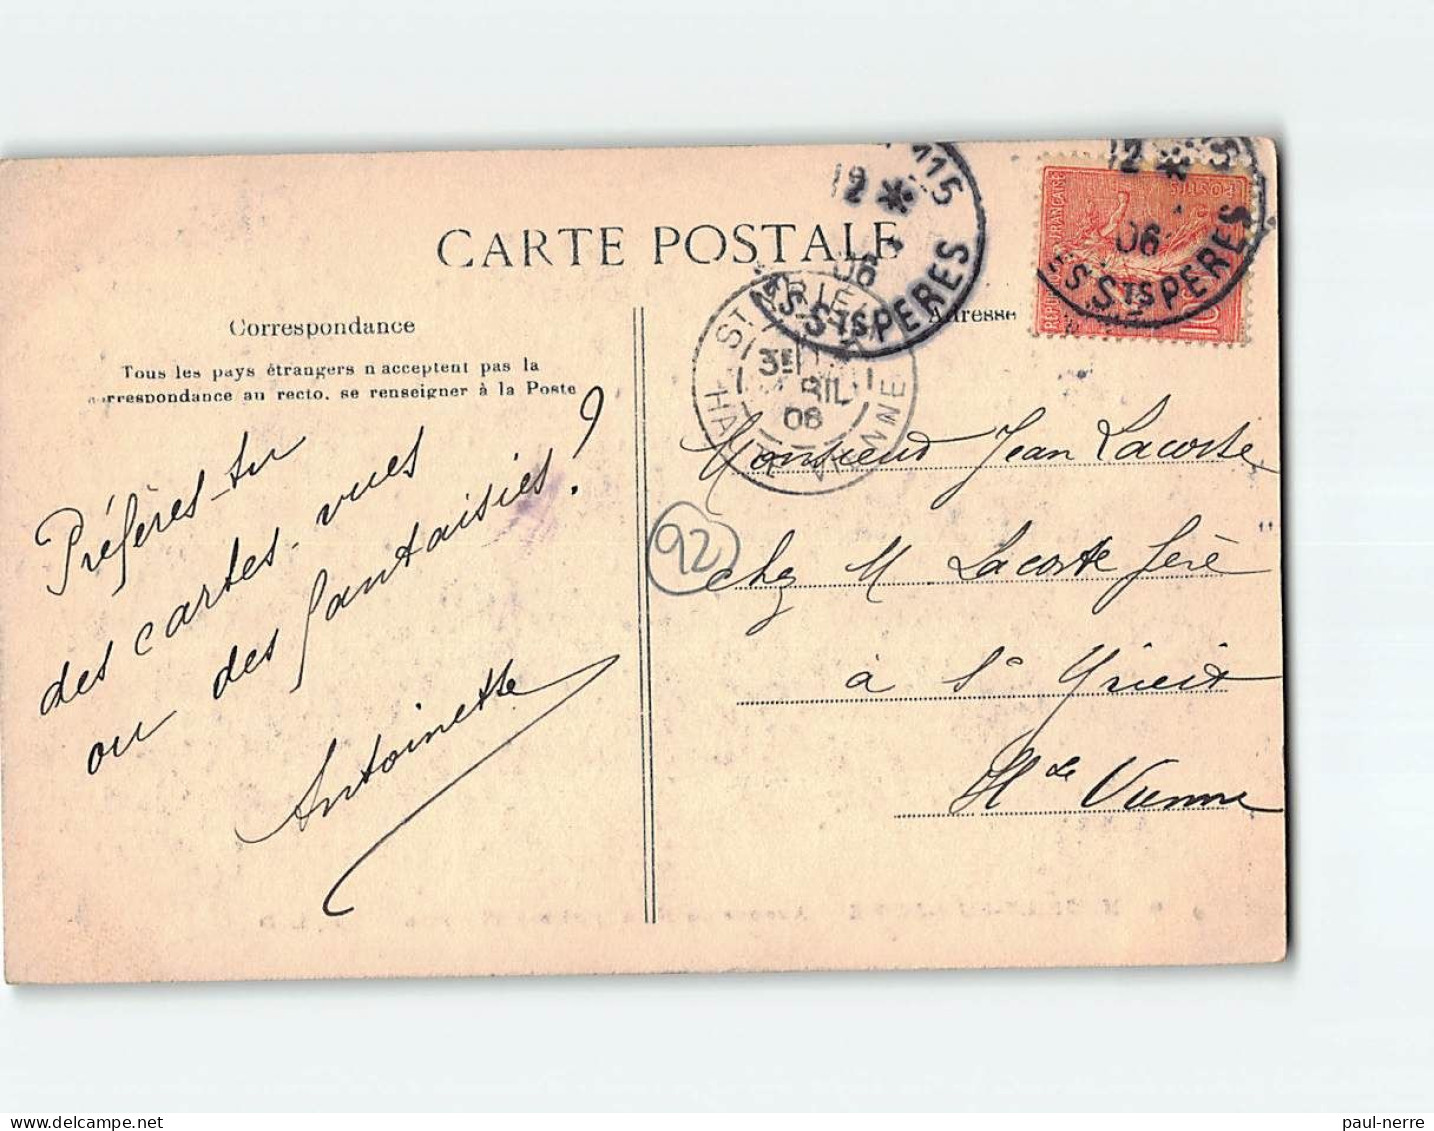 CARTE POSTALE
Correspondance
Tous les pays étrangers n'acceptent pas la
correspondance au recto, se renseigner à la Poste
Adresse
Préfères-tu
des cartes-vues
ou des fantaisies?
Antoinette
Monsieur Jean Lacoste
chez M. Lacoste père
à St Yrieix
Hte Vienne
92
115
12 *
06
STS PERES
ST YRIEIX
3E
RIL
06
HAUTE VIENNE
12 *
06
STS PERES
REPUBLIQUE FRANÇAISE
POSTES
10
paul-nerre